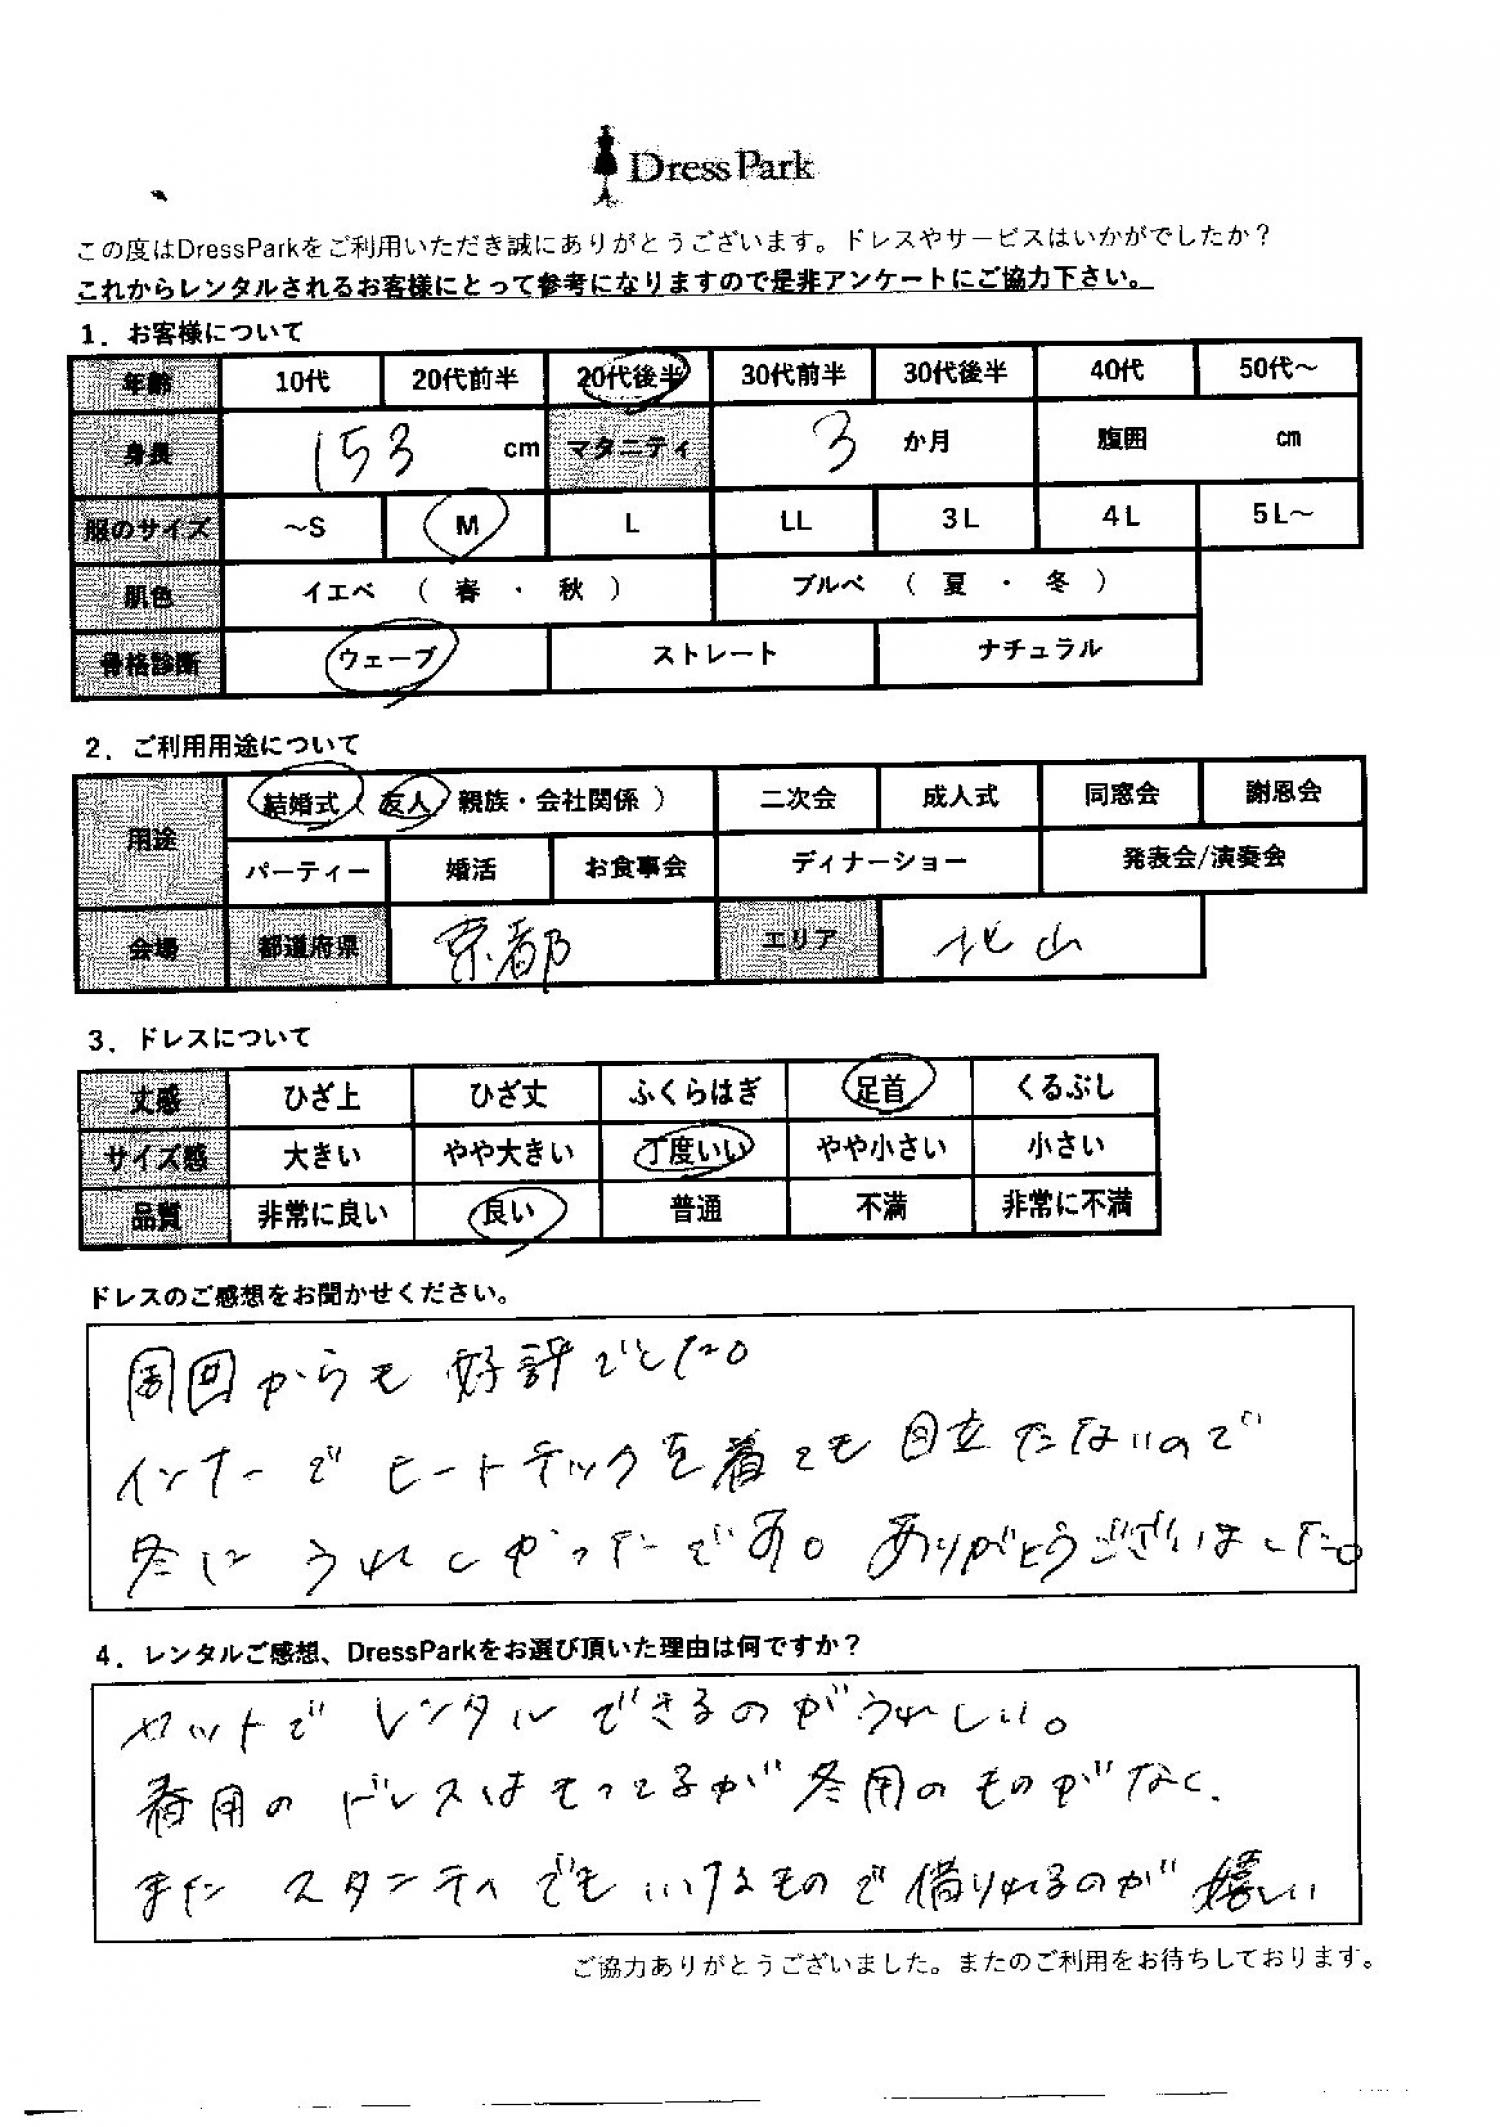 DressPark
この度はDressParkをご利用いただき誠にありがとうございます。ドレスやサービスはいかがでしたか？
これからレンタルされるお客様にとって参考になりますので是非アンケートにご協力下さい。
1．お客様について
年齢 10代 20代前半 20代後半 30代前半 30代後半 40代 50代～
身長 153 cm マタニティ 3 か月 腹囲 cm
服のサイズ ～S M L LL 3L 4L 5L～
肌色 イエベ （ 春 ・ 秋 ） ブルベ （ 夏 ・ 冬 ）
骨格診断 ウェーブ ストレート ナチュラル
2．ご利用用途について
用途 結婚式（ 友人 親族・会社関係 ） 二次会 成人式 同窓会 謝恩会
パーティー 婚活 お食事会 ディナーショー 発表会/演奏会
会場 都道府県 京都 エリア 北山
3．ドレスについて
丈感 ひざ上 ひざ丈 ふくらはぎ 足首 くるぶし
サイズ感 大きい やや大きい 丁度いい やや小さい 小さい
品質 非常に良い 良い 普通 不満 非常に不満
ドレスのご感想をお聞かせください。
周囲からも好評でした。
インナーでヒートテックを着ても目立たないので
冬にうれしかったです。ありがとうございました。
4．レンタルご感想、DressParkをお選び頂いた理由は何ですか？
セットでレンタルできるのがうれしい。
春用のドレスはもってるが冬用のものがなく、
また スタンティでもいけるもので借りれるのが嬉しい
ご協力ありがとうございました。またのご利用をお待ちしております。